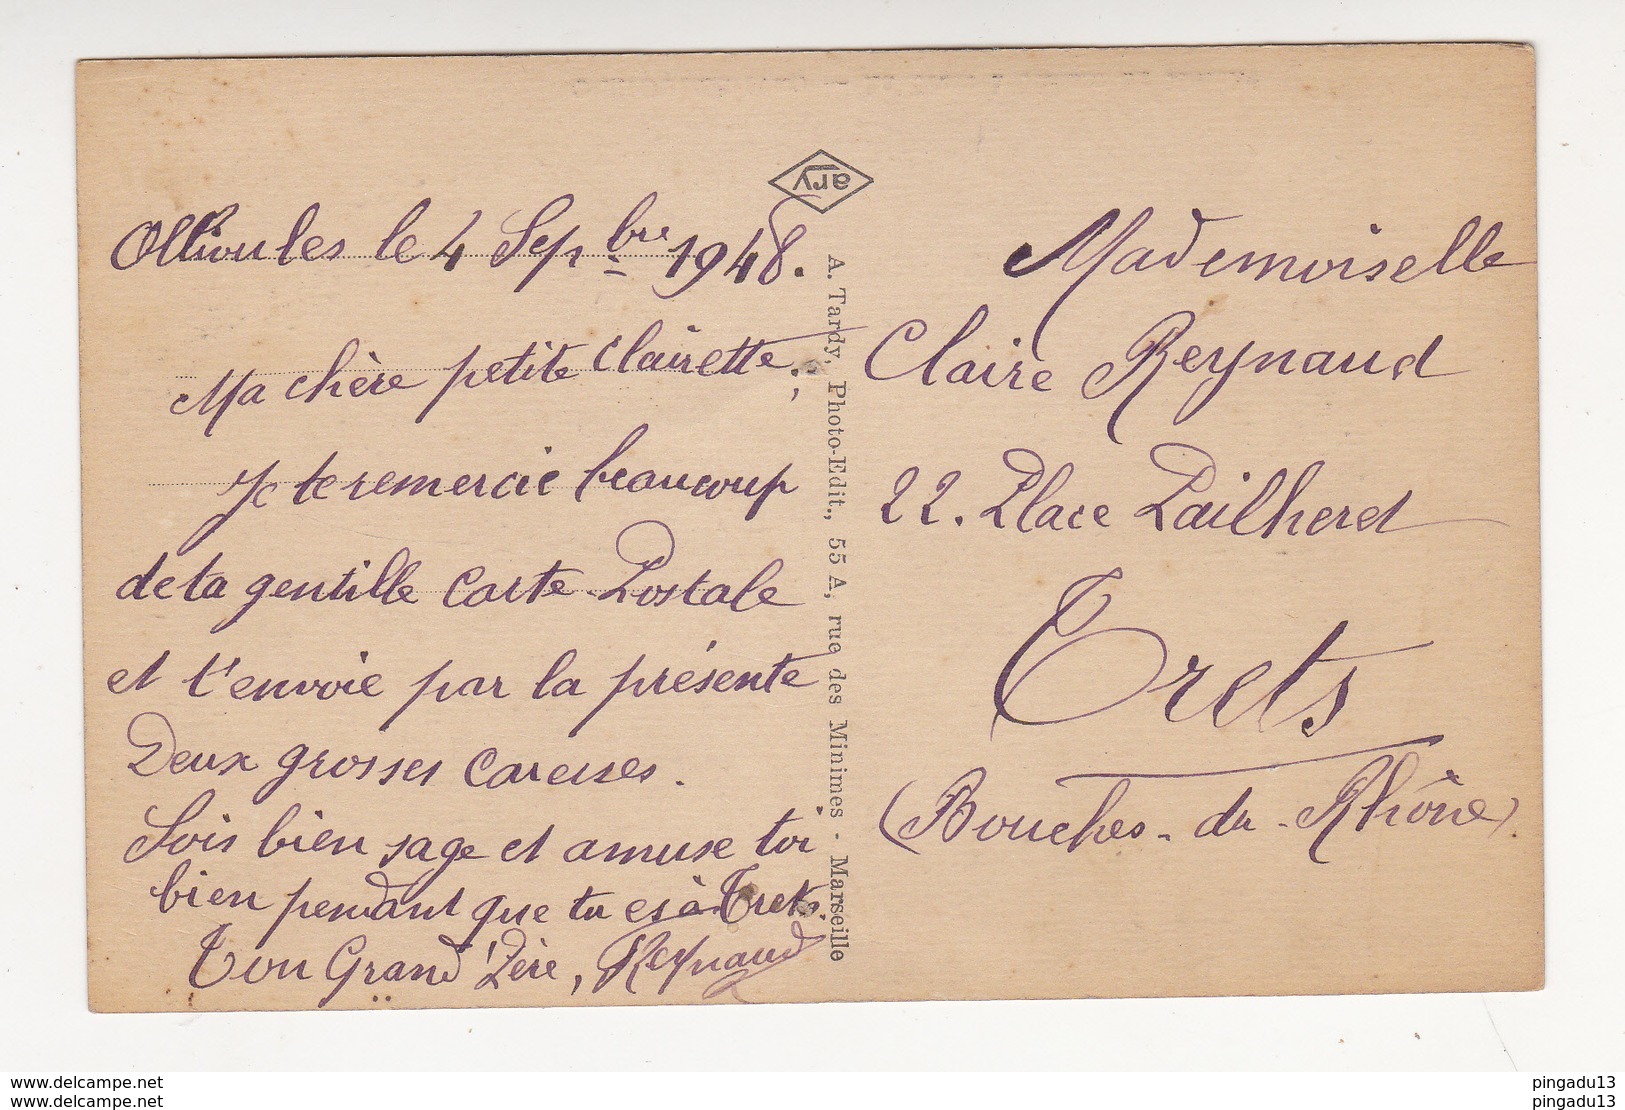 Ollioules le 4 Sepbre 1948.
Ma chère petite Clairette,
Je te remercie beaucoup
de ta gentille Carte-Postale
et t'envoie par la présente
Deux grosses caresses.
Sois bien sage et amuse toi
bien pendant que tu es à Trets.
Ton Grand Père, Reynaud
ary
A. Tardy, Photo-Edit., 55 A, rue des Minimes - Marseille
Mademoiselle
Claire Reynaud
22. Place Pailheret
Trets
(Bouches-du-Rhône)
www.delcampe.net
pingadu13
www.delcampe.com
pingadu13